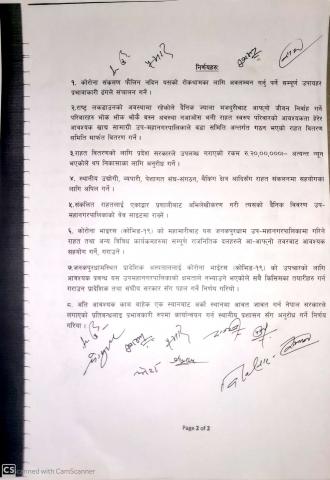 निर्णयहरु:
१. कोरोना संक्रमण फैलिन नदिन यसको रोकथामका लागि अवलम्बन गर्नु पर्ने सम्पूर्ण उपायहरु
प्रभावकारी ढंगले संचालन गर्ने ।
२.राष्ट्र लकडाउनको अवस्थामा रहेकोले दैनिक ज्याला मजदुरीबाट आफ्नो जीवन निर्वाह गर्ने
परिवारहरु भोक भोकै बस्न अवस्था नआओस भनी राहत स्वरुप परिवारको आवश्यकता हेरेर
आवश्यक खाद्य सामाग्री उप-महानगरपालिकाले वडा समिति अन्तर्गत गठन भएको राहत वितरण
समिति मार्फत वितरण गर्ने ।
३.राहत वितरणको लागि प्रदेश सरकारले उपलब्ध गराएको रकम रु.२०,००,०००/- अत्यन्त न्यून
भएकोले थप निकासाका लागि अनुरोध गर्ने ।
४. स्थानीय उद्योगी, व्यापारी, पेशागत संघ-संगठन, बैंकिङ्ग क्षेत्र आदिसँग राहत संकलनमा सहयोगका
लागि अपिल गर्ने ।
५.संकलित राहतलाई एकद्वार प्रणालीबाट अभिलेखीकरण गरी त्यसको दैनिक विवरण उप-
महानगरपालिकाको वेव साइटमा राख्ने ।
६. कोरोना भाइरस (कोभिड-१९) को महामारीबाट यस जनकपुरधाम उप-महानगरपालिकामा गरिने
राहत तथा अन्य विविध कार्यक्रमहरुमा सम्पूर्ण राजनितिक दलहरुले आ-आफ्नो तवरबाट आवश्यक
सहयोग गर्ने, गराउने ।
७.जनकपुरधामस्थित प्रादेशिक अस्पताललाई कोरोना भाईरस (कोभीड-१९) को उपचारको लागि
आवश्यक प्रबन्ध यस उपमहानगरपालिकाको क्षमताले नभ्याउने भएकोले सबै किसिमका तयारीहरु गर्न
गराउन प्रादेशिक तथा संघीय सरकार सँग पहल गर्ने निर्णय गरियो ।
८. अति आवश्यक काम बाहेक एक स्थानबाट अर्को स्थानमा आवत जावत गर्न नेपाल सरकारले
लगाएको प्रतिबन्धलाई प्रभावकारी रुपमा कार्यान्वयन गर्न स्थानीय प्रशासन सँग अनुरोध गर्ने निर्णय
गरियो ।
Page 2 of 2
CS
Scanned with CamScanner